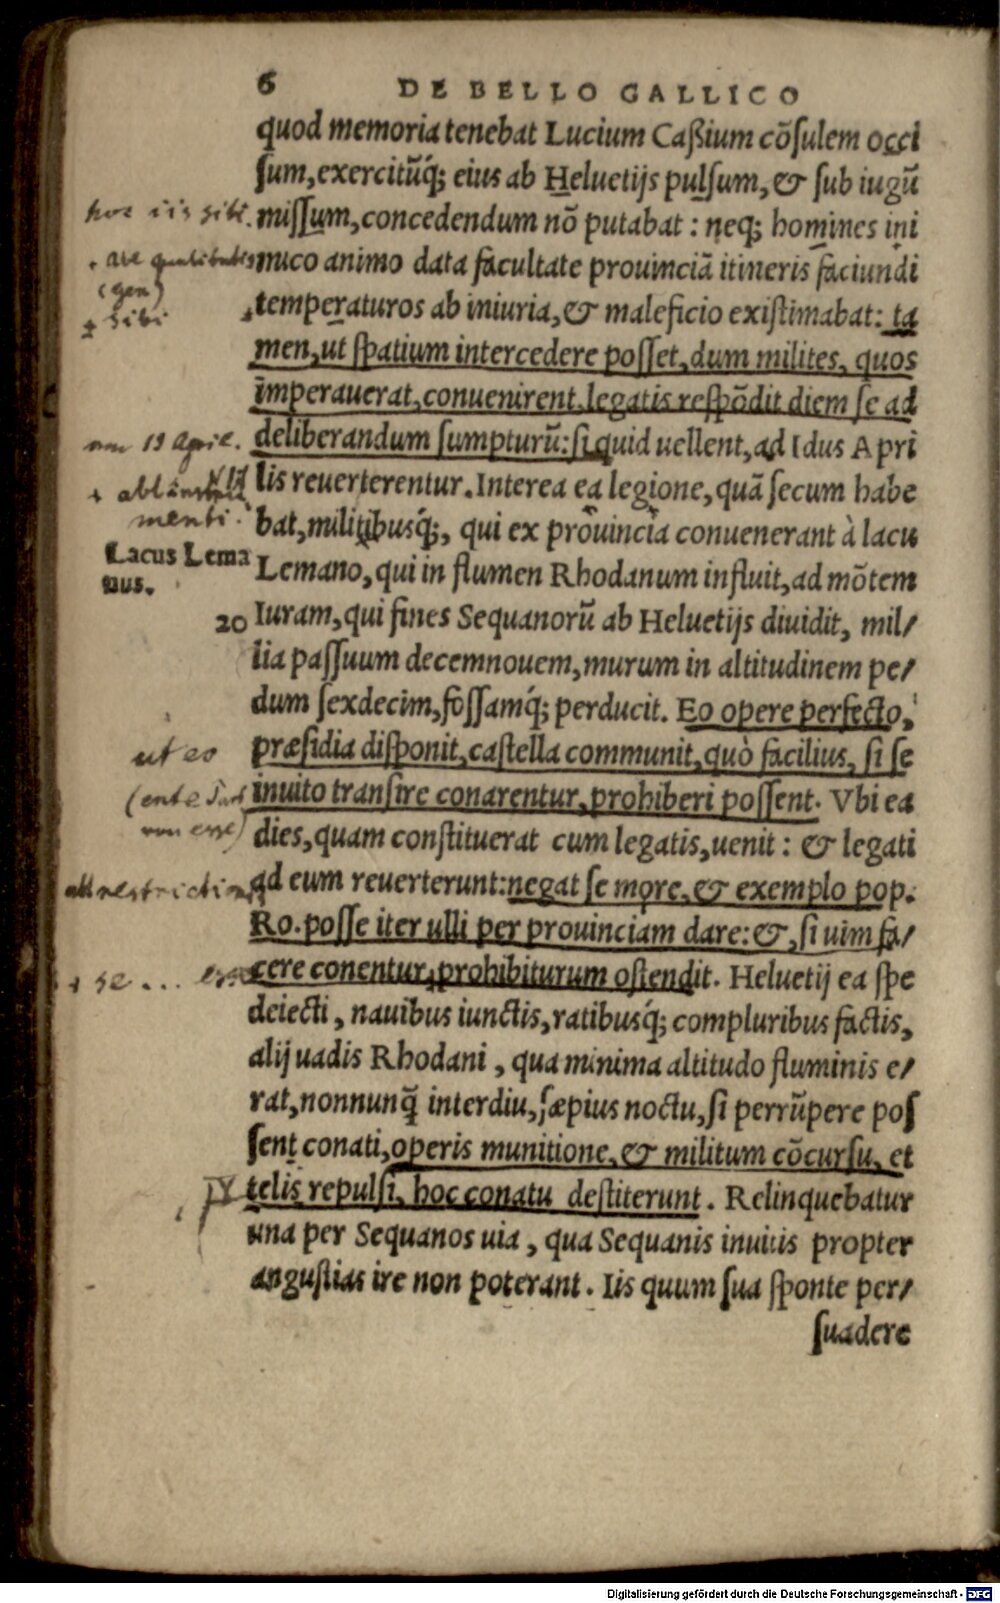 6 DE BELLO GALLICO
quod memoria tenebat Lucium Caßium cōſulem occi
ſum, exercitūq́; eius ab Heluetijs pulſum, & ſub iugū
hoc iis sibi.
miſſum, concedendum nō putabat: neq; homines ini
+ are qualitatis
mico animo data facultate prouinciā itineris faciundi
(gen)
temperaturos ab iniuria, & maleficio exiſtimabat: ta
+ sibi
men, ut ſpatium intercedere poſſet, dum milites, quos
imperauerat, conuenirent, legatis reſpōdit diem ſe ad
13 April.
deliberandum ſumpturū: ſi quid uellent, ad Idus Apri
lis reuerterentur. Interea ea legione, quā ſecum habe
+ abl
menti.
bat, militibusq́;, qui ex prouincia conuenerant à lacu
Lacus Lema
nus.
Lemano, qui in flumen Rhodanum influit, ad mōtem
20 Iuram, qui fines Sequanorū ab Heluetijs diuidit, mil/
lia paſſuum decemnouem, murum in altitudinem pe/
dum ſexdecim, foſſamq́; perducit. Eo opere perfecto,
ut eo
præſidia diſponit, caſtella communit, quò facilius, ſi ſe
inuito tranſire conarentur, prohiberi poſſent. Vbi ea
non esse)
dies, quam conſtituerat cum legatis, uenit: & legati
ad eum reuerterunt: negat ſe more, & exemplo pop.
Ro. poſſe iter ulli per prouinciam dare: &, ſi uim fa/
+ se ...
cere conentur, prohibiturum oſtendit. Heluetij ea ſpe
deiecti, nauibus iunctis, ratibusq́; compluribus factis,
alij uadis Rhodani, qua minima altitudo fluminis e/
rat, nonnunq̄ interdiu, ſæpius noctu, ſi perrūpere poſ
ſent conati, operis munitione, & militum cōcurſu, et
telis repulſi, hoc conatu deſtiterunt. Relinquebatur
una per Sequanos uia, qua Sequanis inuitis propter
anguſtias ire non poterant. Iis quum ſua ſponte per/
ſuadere
Digitalisierung gefördert durch die Deutsche Forschungsgemeinschaft - DFG